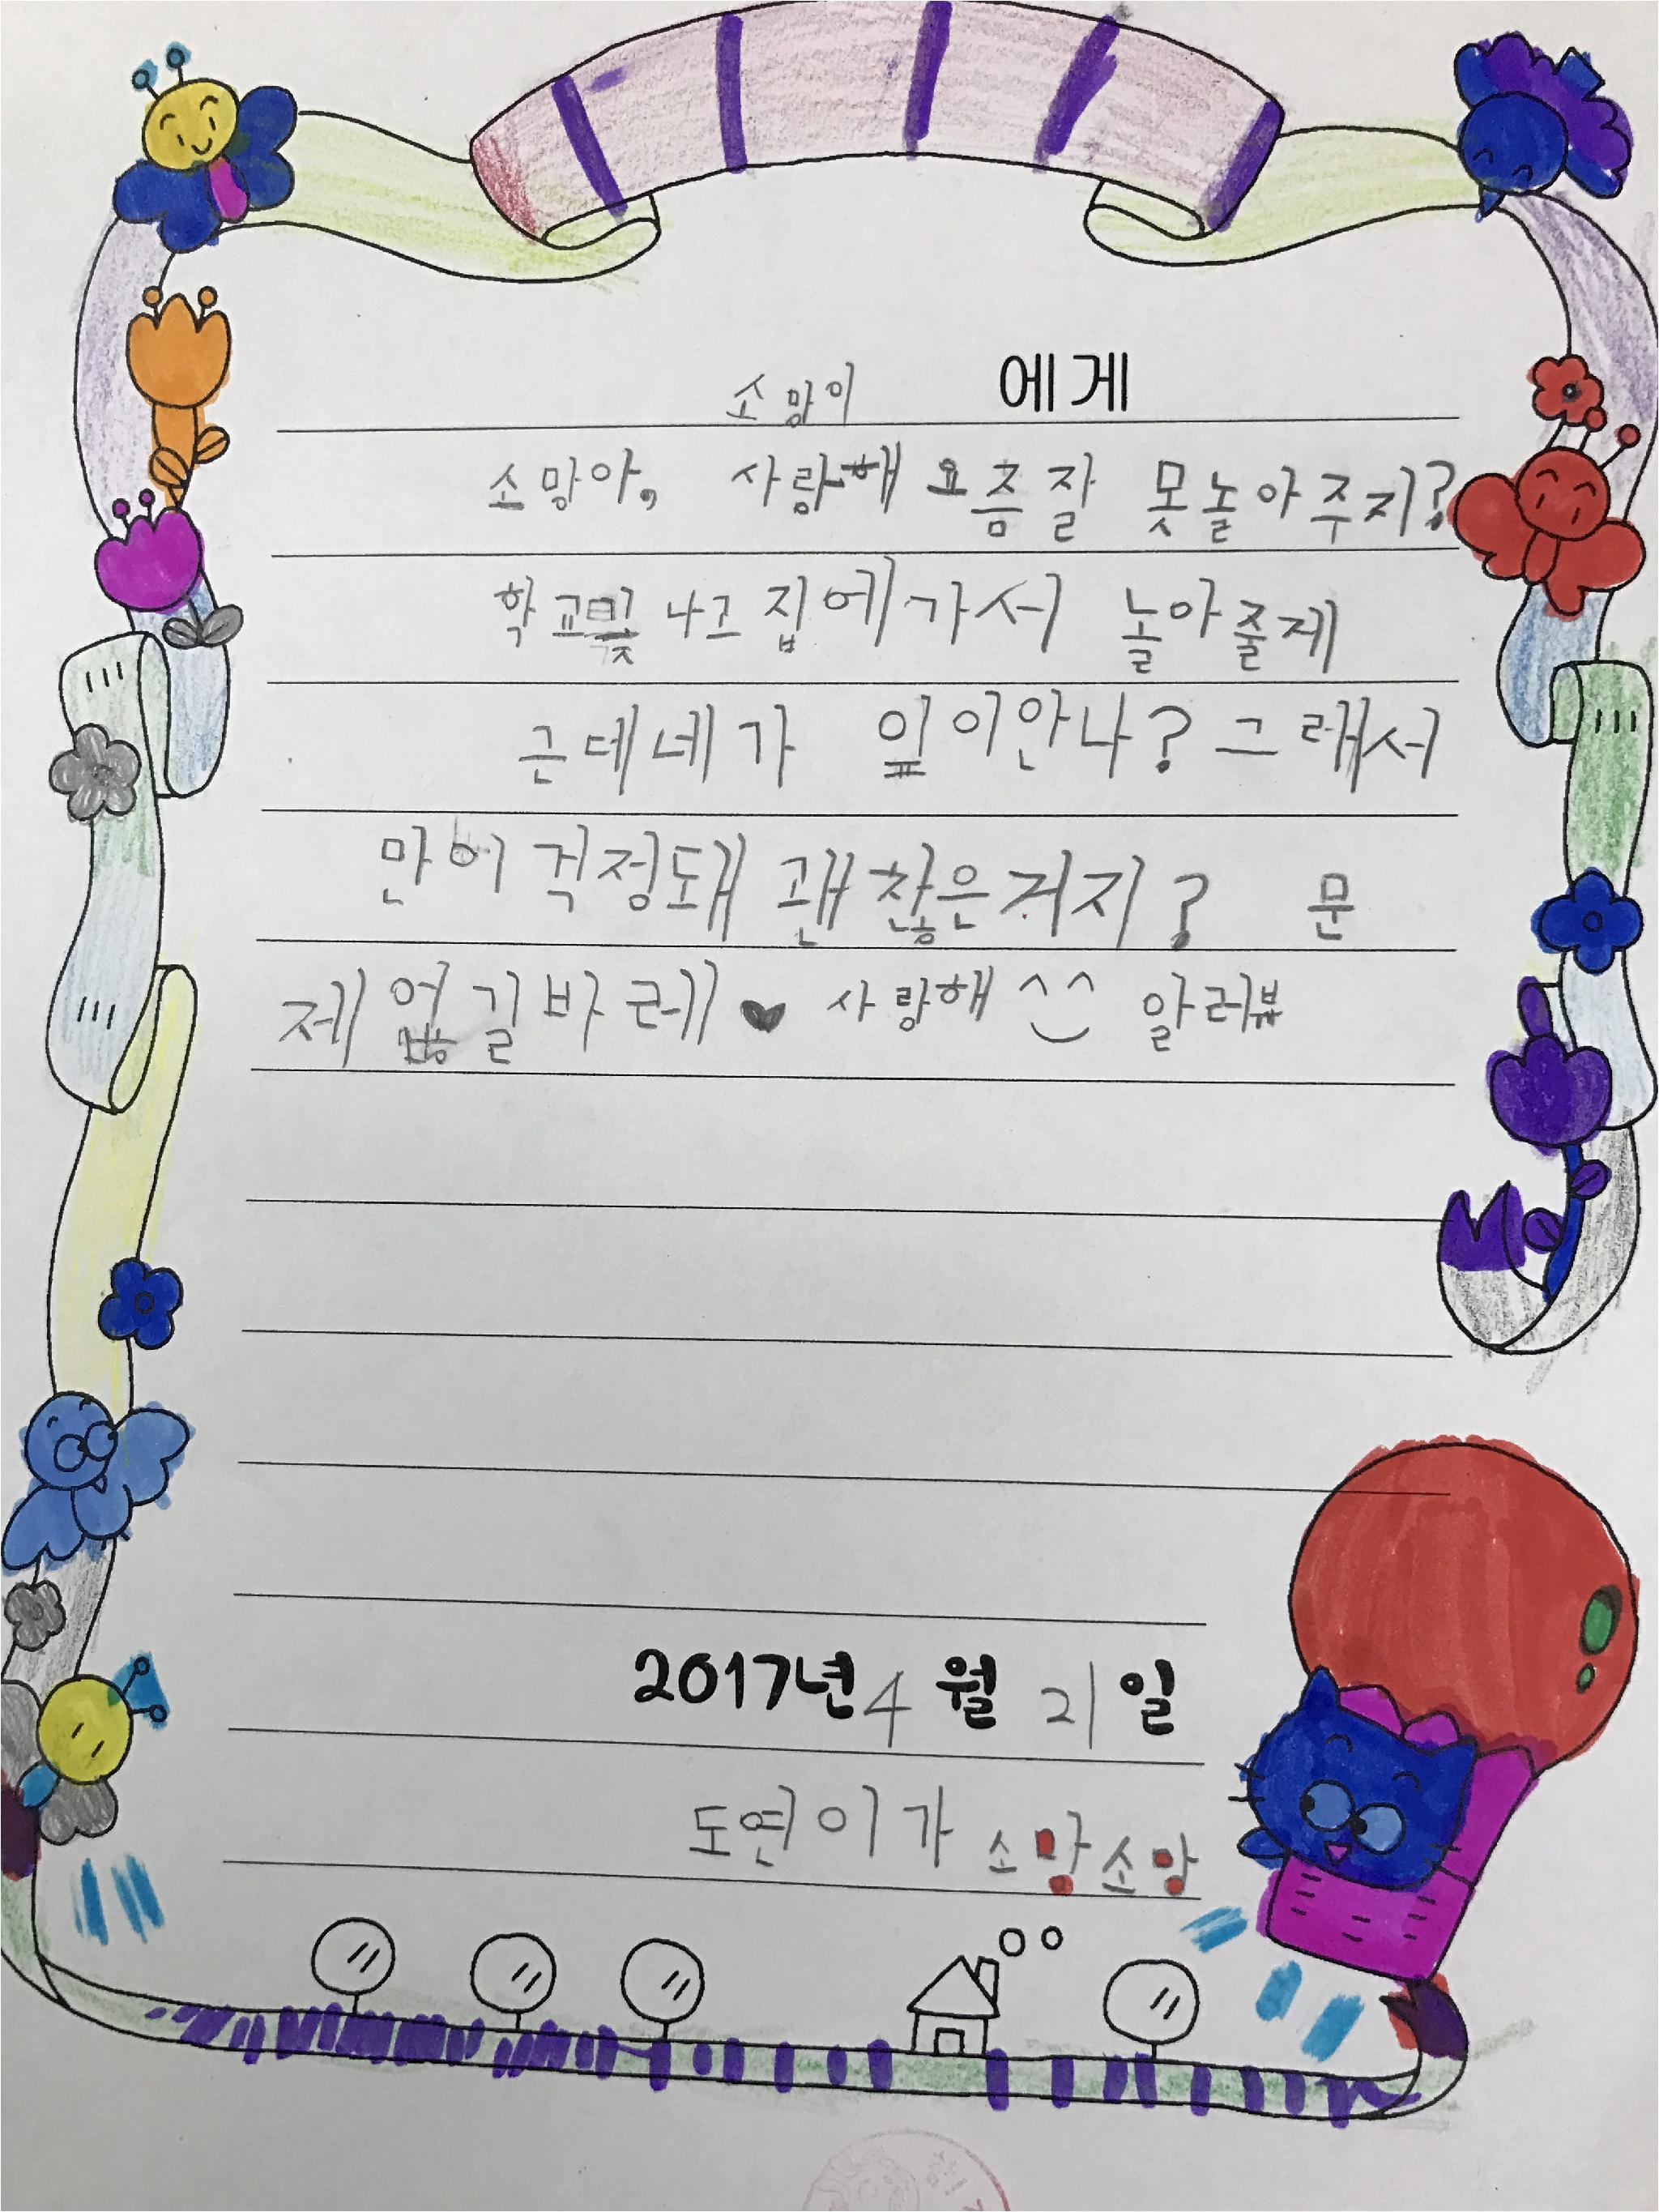 소망이 에게
소망아, 사랑해 요즘잘 못놀아주지?
학교끛나고 집에가서 놀아줄게
근데네가 잎이안나? 그래서
만이 걱정돼 괜찮은거지? 문
제 없길바레♥ 사랑해^^ 알러뷰
2017년 4월 21일
도연이가 소망소망